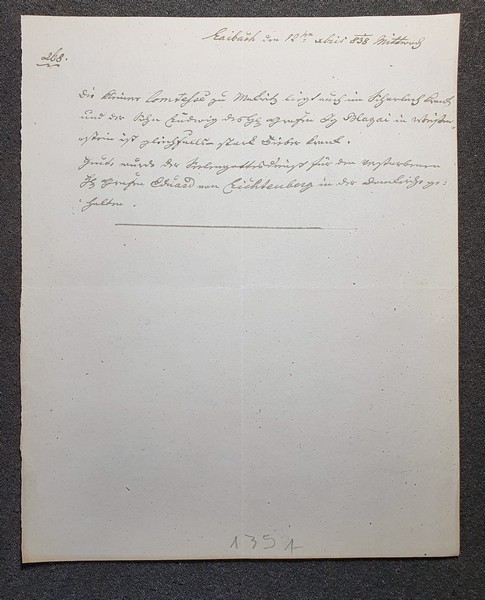 Laibach den 12ten April 838 Mittwoch
268.
Die kleine Comtesse zu liegt auch im Scharlach krank
und der Sohn Ludwig des Gf in
stein ist gleichfalls stark Fieber krank.
Heute wurde der Seelengottesdienst für den verstorbenen
Grafen Eduard von Lichtenberg in der Domkirche ge-
halten.
1391